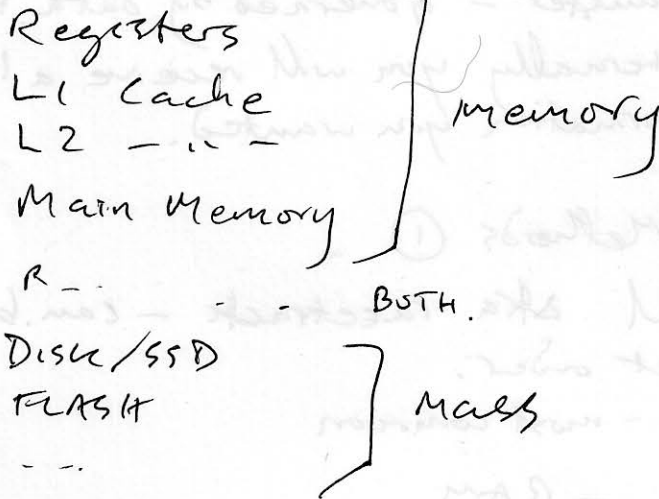 Registers
L1 Cache
L2 — ‥ —
Main Memory
memory
R — . . - BOTH.
DISK/SSD
FLASH
- - .
Mass